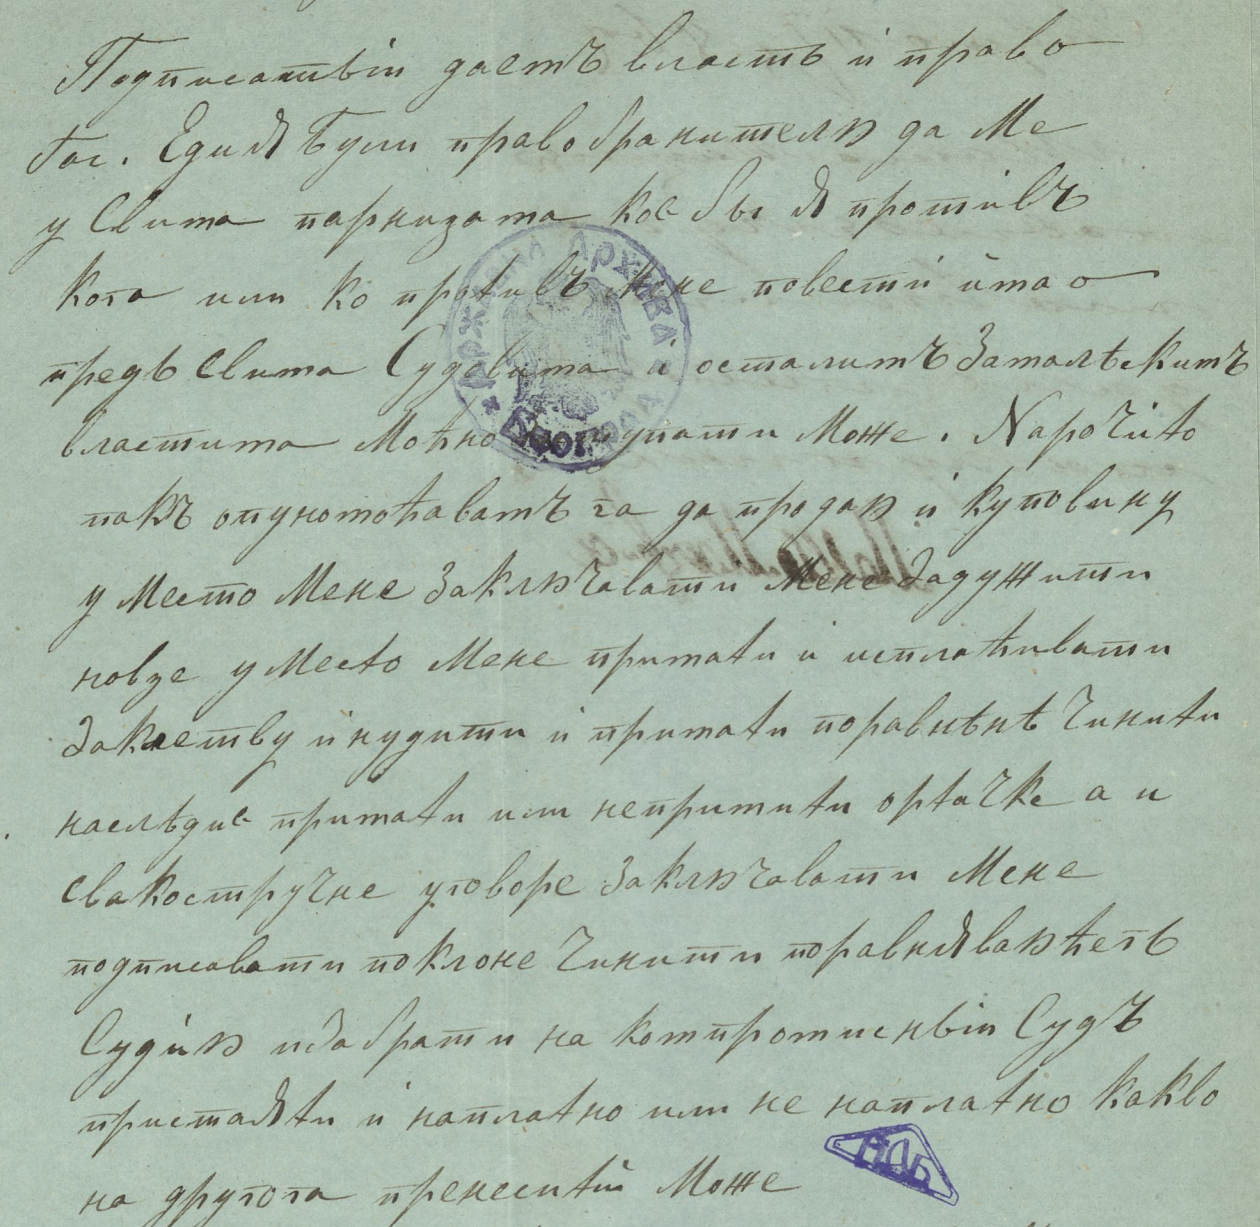 Подписатый даетъ власть и право
Гос. Един Були правобранителю да Ме
у Свима парницама кое бы я противъ
кога или ко противъ мене повести имао
предъ Свима Судовима и осталимъ Заталъскимъ
властима Моћно ступати Може. Нарочито
пакъ опуномоћавамъ га да продаю и куповину
у Место Мене Заключавати Мене Задужити
новце у Место Мене примати и исплаћивати
Заклетву и нудити и примати поравнѣнѣ Чинити
наслѣдие примати или непримити ортачке а и
свакостручне уговоре Заключавати Мене
подписавати поклоне Чинити поравняваюћегъ
Судию избрати на компромисный Судъ
пристаяти и наплатно или не наплатно какво
на другога пренесити Може
Државна Архива
Београд
НДБ